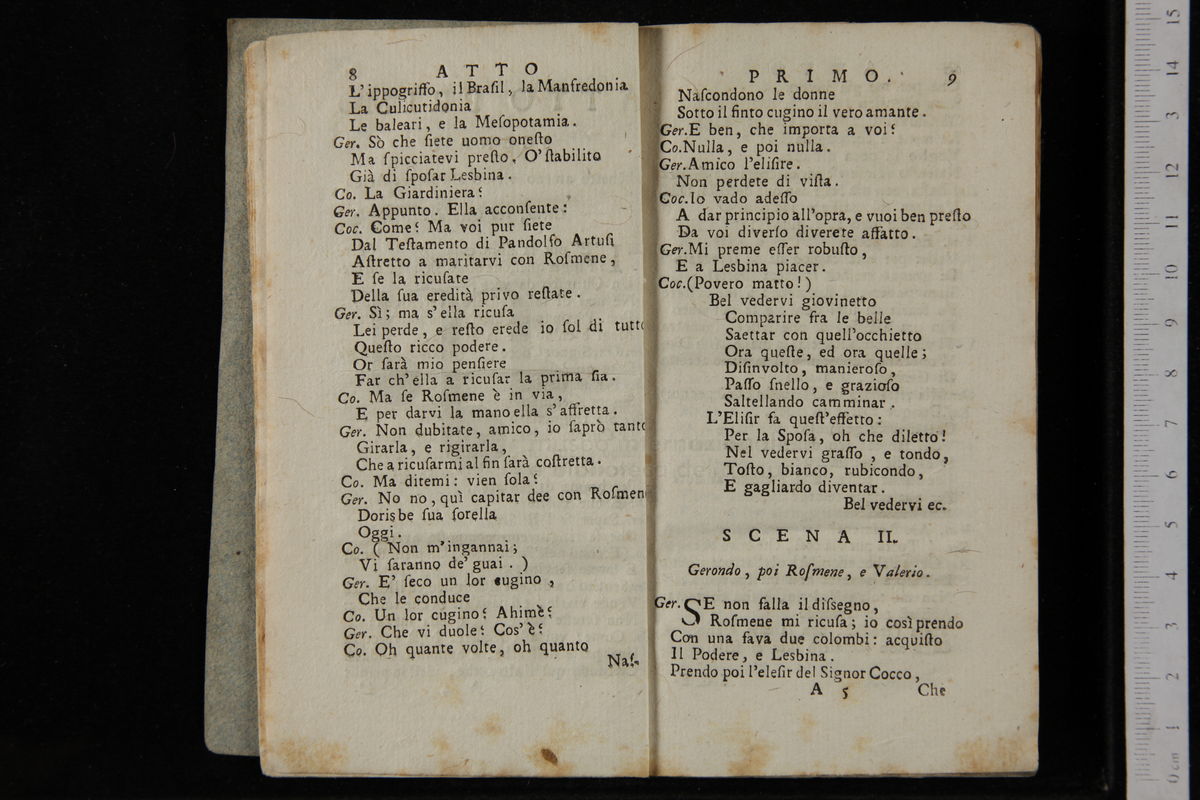 8 ATTO
L'ippogriffo, il Braſil, la Manfredonia
La Culicutidonia
Le baleari, e la Meſopotamia.
Ger. Sò che ſiete uomo oneſto
Ma ſpicciatevi preſto, O' ſtabilito
Già di ſpoſar Lesbina.
Co. La Giardiniera?
Ger. Appunto. Ella acconſente:
Coc. Come? Ma voi pur ſiete
Dal Teſtamento di Pandolfo Artuſi
Aſtretto a maritarvi con Roſmene,
E ſe la ricuſate
Della ſua eredità privo reſtate.
Ger. Sì; ma s'ella ricuſa
Lei perde, e reſto erede io ſol di tutto
Queſto ricco podere.
Or ſarà mio penſiere
Far ch'ella a ricuſar la prima ſia.
Co. Ma ſe Roſmene è in via,
E per darvi la mano ella s'affretta.
Ger. Non dubitate, amico, io ſaprò tanto
Girarla, e rigirarla,
Che a ricuſarmi al fin ſarà coſtretta.
Co. Ma ditemi: vien ſola?
Ger. No no, quì capitar dee con Roſmene
Dorisbe ſua ſorella
Oggi.
Co. ( Non m'ingannai;
Vi ſaranno de' guai. )
Ger. E' ſeco un lor cugino,
Che le conduce
Co. Un lor cugino? Ahimè?
Ger. Che vi duole? Cos'è?
Co. Oh quante volte, oh quanto
Naſ-
PRIMO. 9
Naſcondono le donne
Sotto il finto cugino il vero amante.
Ger. E ben, che importa a voi?
Co. Nulla, e poi nulla.
Ger. Amico l'eliſire.
Non perdete di viſta.
Coc. Io vado adeſſo
A dar principio all'opra, e vuoi ben preſto
Da voi diverſo diverete affatto.
Ger. Mi preme eſſer robuſto,
E a Lesbina piacer.
Coc. (Povero matto!)
Bel vedervi giovinetto
Comparire fra le belle
Saettar con quell'occhietto
Ora queſte, ed ora quelle;
Diſinvolto, manieroſo,
Paſſo ſnello, e grazioſo
Saltellando camminar.
L'Eliſir fa queſt'effetto:
Per la Spoſa, oh che diletto!
Nel vedervi graſſo, e tondo,
Toſto, bianco, rubicondo,
E gagliardo diventar.
Bel vedervi ec.
SCENA II.
Gerondo, poi Roſmene, e Valerio.
Ger. SE non falla il diſsegno,
Roſmene mi ricuſa; io così prendo
Con una fava due colombi: acquiſto
Il Podere, e Lesbina.
Prendo poi l'eleſir del Signor Cocco,
A 5 Che
15
14
13
12
11
10
9
8
7
6
5
4
3
2
1
0 cm